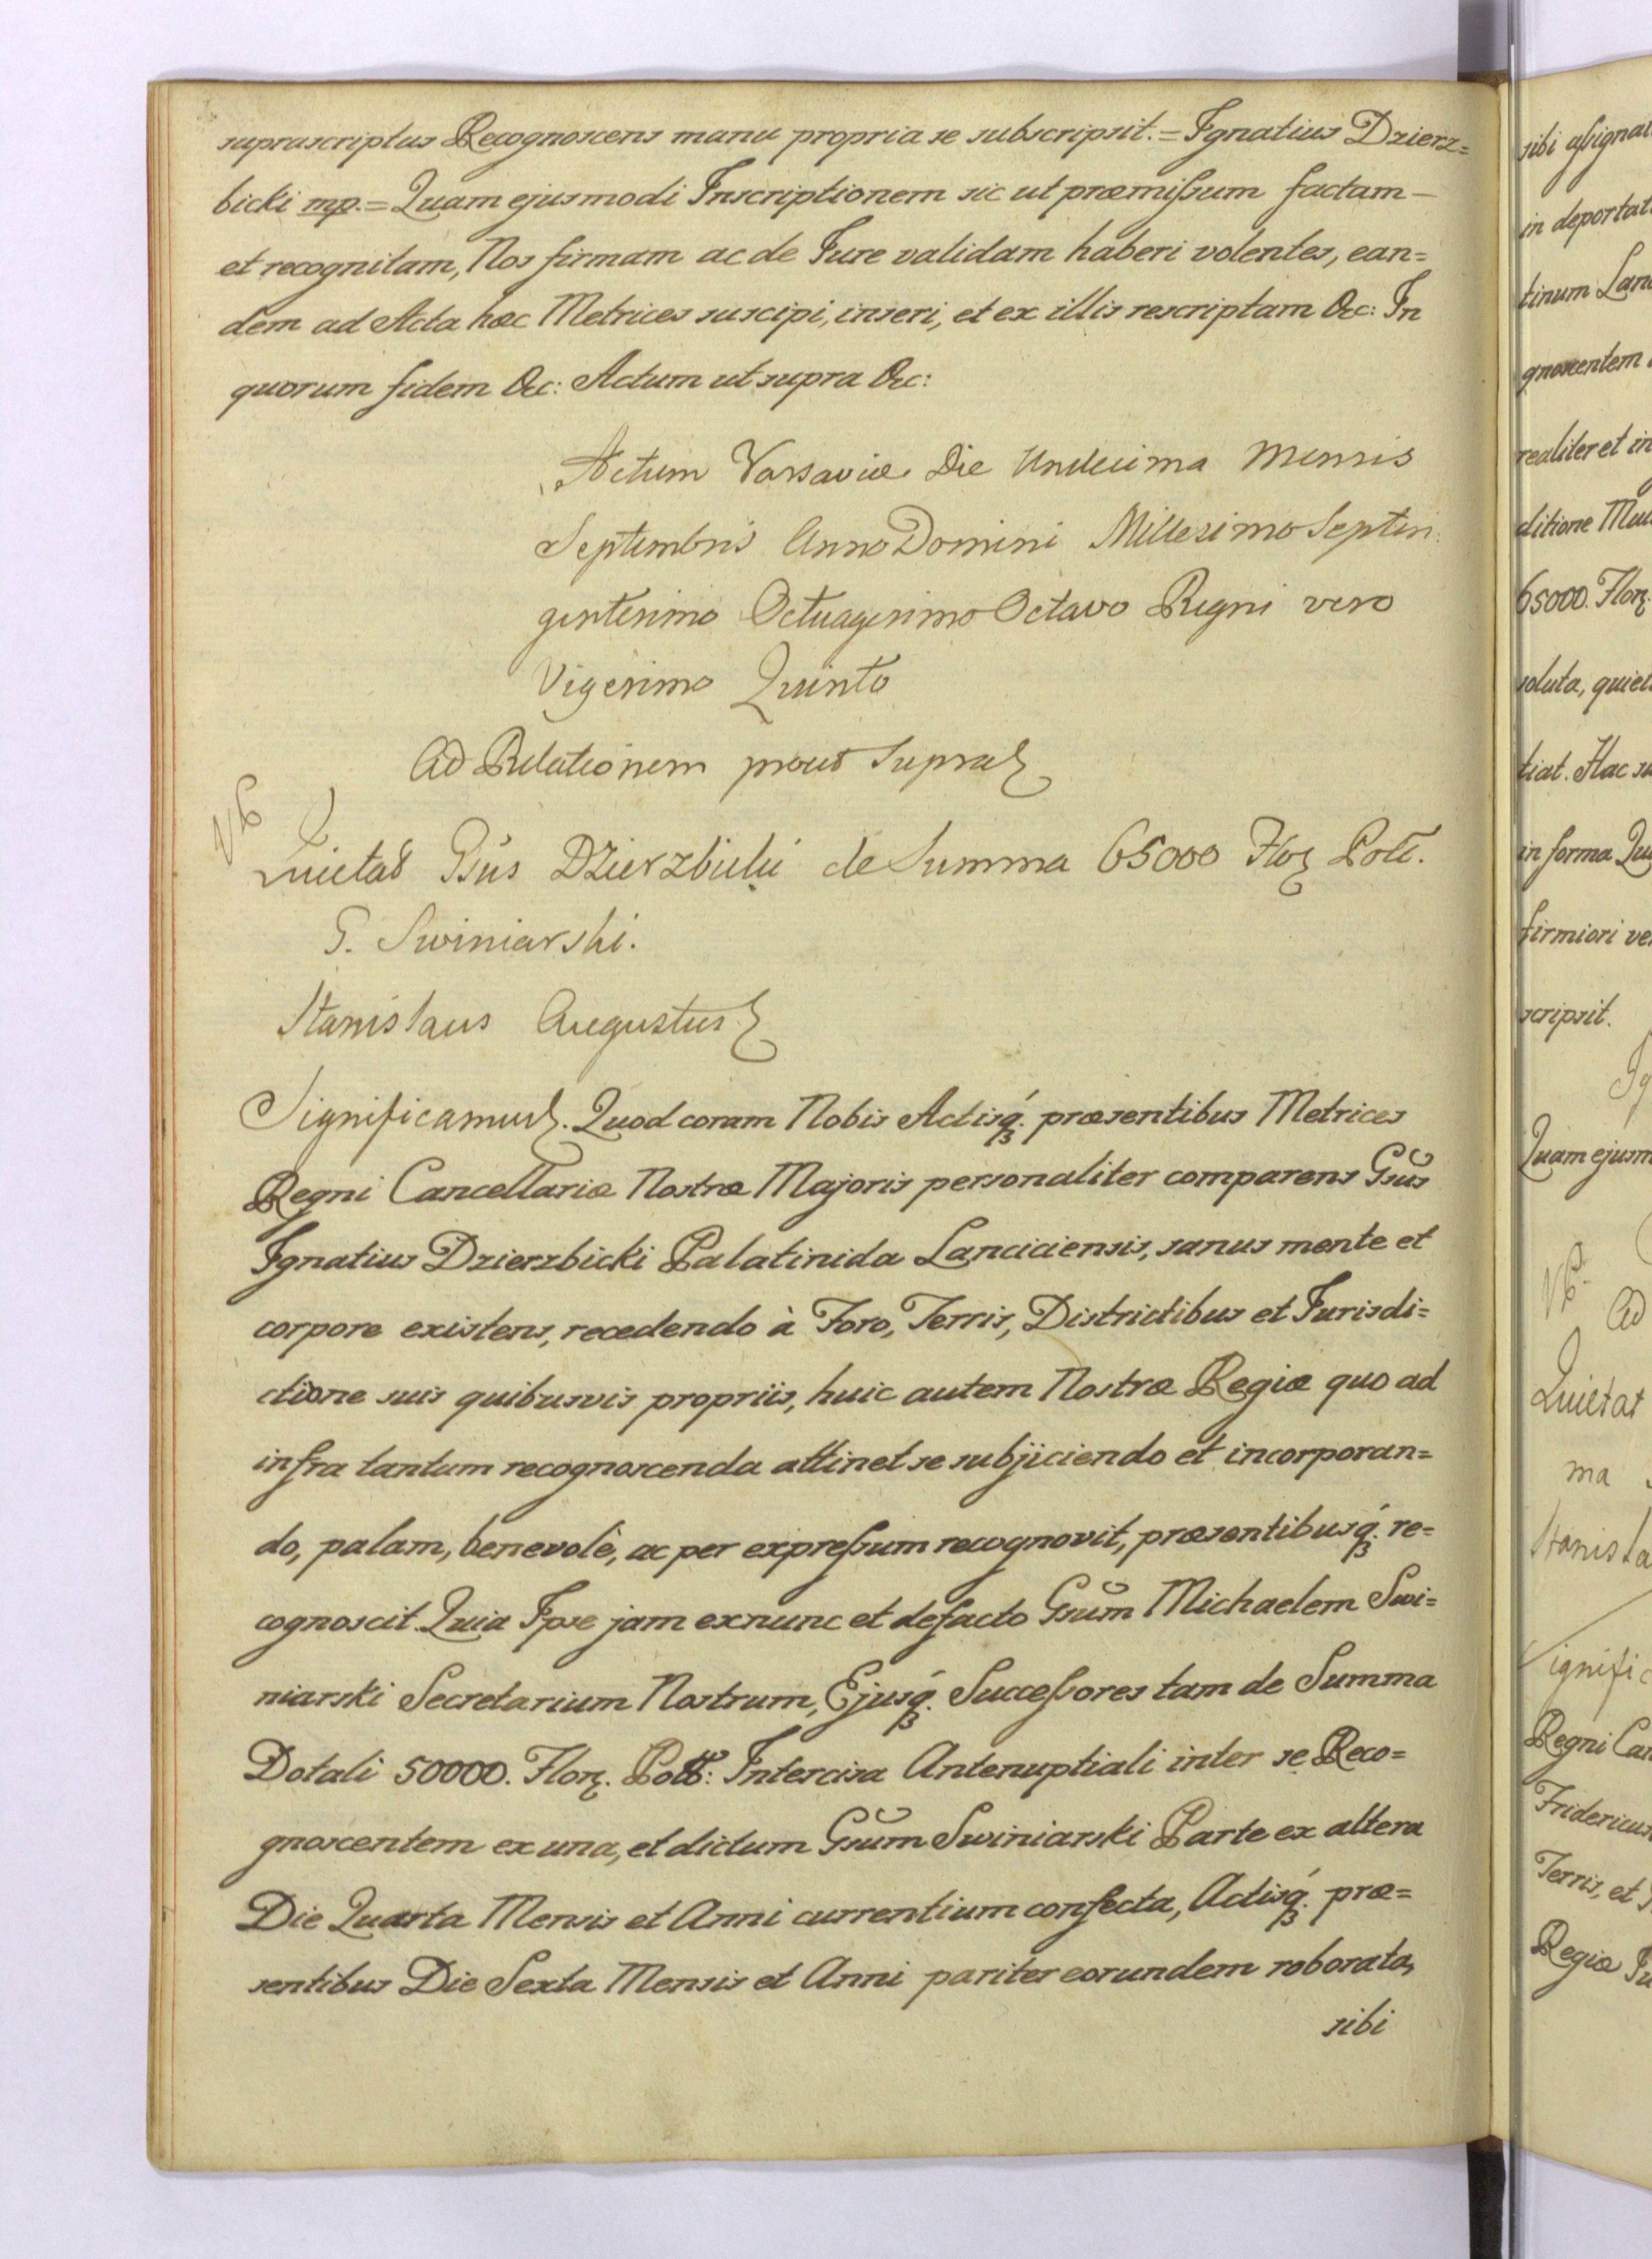 suprascriptus Recognoscens manu propria se subscripsit. = Ignatius Dzierz=
bicki mp. = Quam ejusmodi Inscriptionem sic ut præmißum factam —
et recognitam, Nos firmam ac de Jure validam haberi volentes, ean=
dem ad Acta hæc Metrices suscipi, inseri, et ex illis rescriptam &c: In
quorum fidem &c: Actum ut supra &c:
Actum Varsaviæ Die Undecima Mensis
Septembris Anno Domini Millesimo Septin
gentesimo Octuagesimo Octavo Regni vero
Vigesimo Quinto
Ad Relationem prout Supra
Quietat Gsus Dzierzbicki de Summa 65000 Flor Poll.
G. Swiniarski.
Stanislaus Augustus
Significamus. Quod coram Nobis Actisq. præsentibus Metrices
Regni Cancellariæ Nostræ Majoris personaliter comparens Gsus
Ignatius Dzierzbicki Palatinida Lanciciensis, sanus mente et
corpore existens, recedendo à Foro, Terris, Districtibus et Jurisdi=
ctione suis quibusvis propriis, huic autem Nostræ Regiæ quo ad
infra tantum recognoscenda attinet se subjiciendo et incorporan=
do, palam, benevolè, ac per expreßum recognovit, præsentibusq. re=
cognoscit. Quia Ipse jam exnunc et defacto Gsum Michaelem Swi=
niarski Secretarium Nostrum, Ejusq. Succeßores tam de Summa
Dotali 50000. Flor. Poll: Intercisa Antenuptiali inter se Reco=
gnoscentem ex una, et dictum Gsum Swiniarski Parte ex altera
Die Quarta Mensis et Anni currentium confecta, Actisq. præ=
sentibus Die Sexta Mensis et Anni pariter eorundem roborata,
sibi
sibi aßignat
in deportat
tinum Lan
gnoscentem
realiter et in
ditione
65000. Flor.
soluta, quiet
tiat. Hac
in forma
firmiori
scripsit.
Quam ejusm
Ad
Quietat
ma
Stanisla
ignific
Regni Can
Fridericus
Terris, et
Regiæ